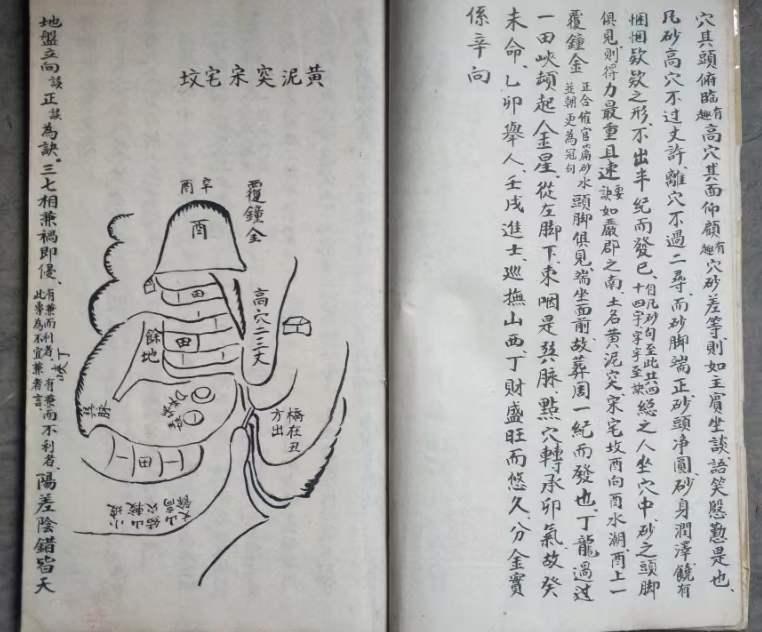 穴其頭俯臨有趣高穴其面仰顧有趣穴砂差等則如主賓坐談語笑慇懃是也
凡砂高穴不过丈許離穴不過二尋而砂脚端正砂頭净圓砂身潤澤饒有
悃悃欵欵之形不出半紀而發已自凡砂句至此共四十四字字字至訣總之人坐穴中砂之頭脚
俱見則得力最重且速要訣如嚴郡之南土名黄泥突宋宅坟酉向酉水潮酉上一
覆鐘金正合催官篇砂水並朝更為冠句頭脚俱見端坐面前故葬周一紀而發也丁龍過过
一田峡頓起金星從左脚下束咽是巽脉點穴轉承卯氣故癸
未命乙卯舉人壬戌進士巡撫山西丁財盛旺而悠久分金實
係辛向
黄泥突宋宅坟
辛
酉
酉
覆鐘金
高穴二三丈
田
田
餘地
橋在丑方出
巽脉
田
丁峡
地盤立向談正談為訣三七相兼禍即侵有兼而利者有兼而不利者此專為不宜兼者言陽差陰錯皆天